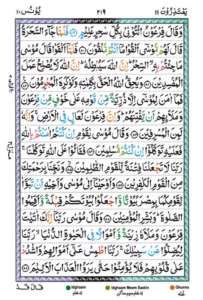 يعتذرون ۱۱ ۲۱۹ يونس ۱۰
وَقَالَ فِرْعَوْنُ ائْتُوْنِيْ بِكُلِّ سٰحِرٍ عَلِيْمٍ فَلَمَّا جَآءَ السَّحَرَةُ
قَالَ لَهُمْ مُّوْسٰٓى اَلْقُوْا مَآ اَنْتُمْ مُّلْقُوْنَ فَلَمَّآ اَلْقَوْا قَالَ مُوْسٰى
مَا جِئْتُمْ بِهِ السِّحْرُ اِنَّ اللّٰهَ سَيُبْطِلُهٗ اِنَّ اللّٰهَ لَا يُصْلِحُ عَمَلَ
الْمُفْسِدِيْنَ وَيُحِقُّ اللّٰهُ الْحَقَّ بِكَلِمٰتِهٖ وَلَوْ كَرِهَ الْمُجْرِمُوْنَ
فَمَآ اٰمَنَ لِمُوْسٰٓى اِلَّا ذُرِّيَّةٌ مِّنْ قَوْمِهٖ عَلٰى خَوْفٍ مِّنْ فِرْعَوْنَ
وَمَلَا۟ئِهِمْ اَنْ يَّفْتِنَهُمْ وَاِنَّ فِرْعَوْنَ لَعَالٍ فِى الْاَرْضِ وَاِنَّهٗ
لَمِنَ الْمُسْرِفِيْنَ وَقَالَ مُوْسٰى يٰقَوْمِ اِنْ كُنْتُمْ اٰمَنْتُمْ بِاللّٰهِ
فَعَلَيْهِ تَوَكَّلُوْٓا اِنْ كُنْتُمْ مُّسْلِمِيْنَ فَقَالُوْا عَلَى اللّٰهِ تَوَكَّلْنَا
رَبَّنَا لَا تَجْعَلْنَا فِتْنَةً لِّلْقَوْمِ الظّٰلِمِيْنَ وَنَجِّنَا بِرَحْمَتِكَ
مِنَ الْقَوْمِ الْكٰفِرِيْنَ وَاَوْحَيْنَآ اِلٰى مُوْسٰى وَاَخِيْهِ اَنْ تَبَوَّاٰ
لِقَوْمِكُمَا بِمِصْرَ بُيُوْتًا وَّاجْعَلُوْا بُيُوْتَكُمْ قِبْلَةً وَّاَقِيْمُوا
الصَّلٰوةَ وَبَشِّرِ الْمُؤْمِنِيْنَ وَقَالَ مُوْسٰى رَبَّنَآ اِنَّكَ اٰتَيْتَ
فِرْعَوْنَ وَمَلَاَهٗ زِيْنَةً وَّاَمْوَالًا فِى الْحَيٰوةِ الدُّنْيَا رَبَّنَا
لِيُضِلُّوْا عَنْ سَبِيْلِكَ رَبَّنَا اطْمِسْ عَلٰٓى اَمْوَالِهِمْ وَاشْدُدْ
عَلٰى قُلُوْبِهِمْ فَلَا يُؤْمِنُوْا حَتّٰى يَرَوُا الْعَذَابَ الْاَلِيْمَ
Iqlab Ghunna